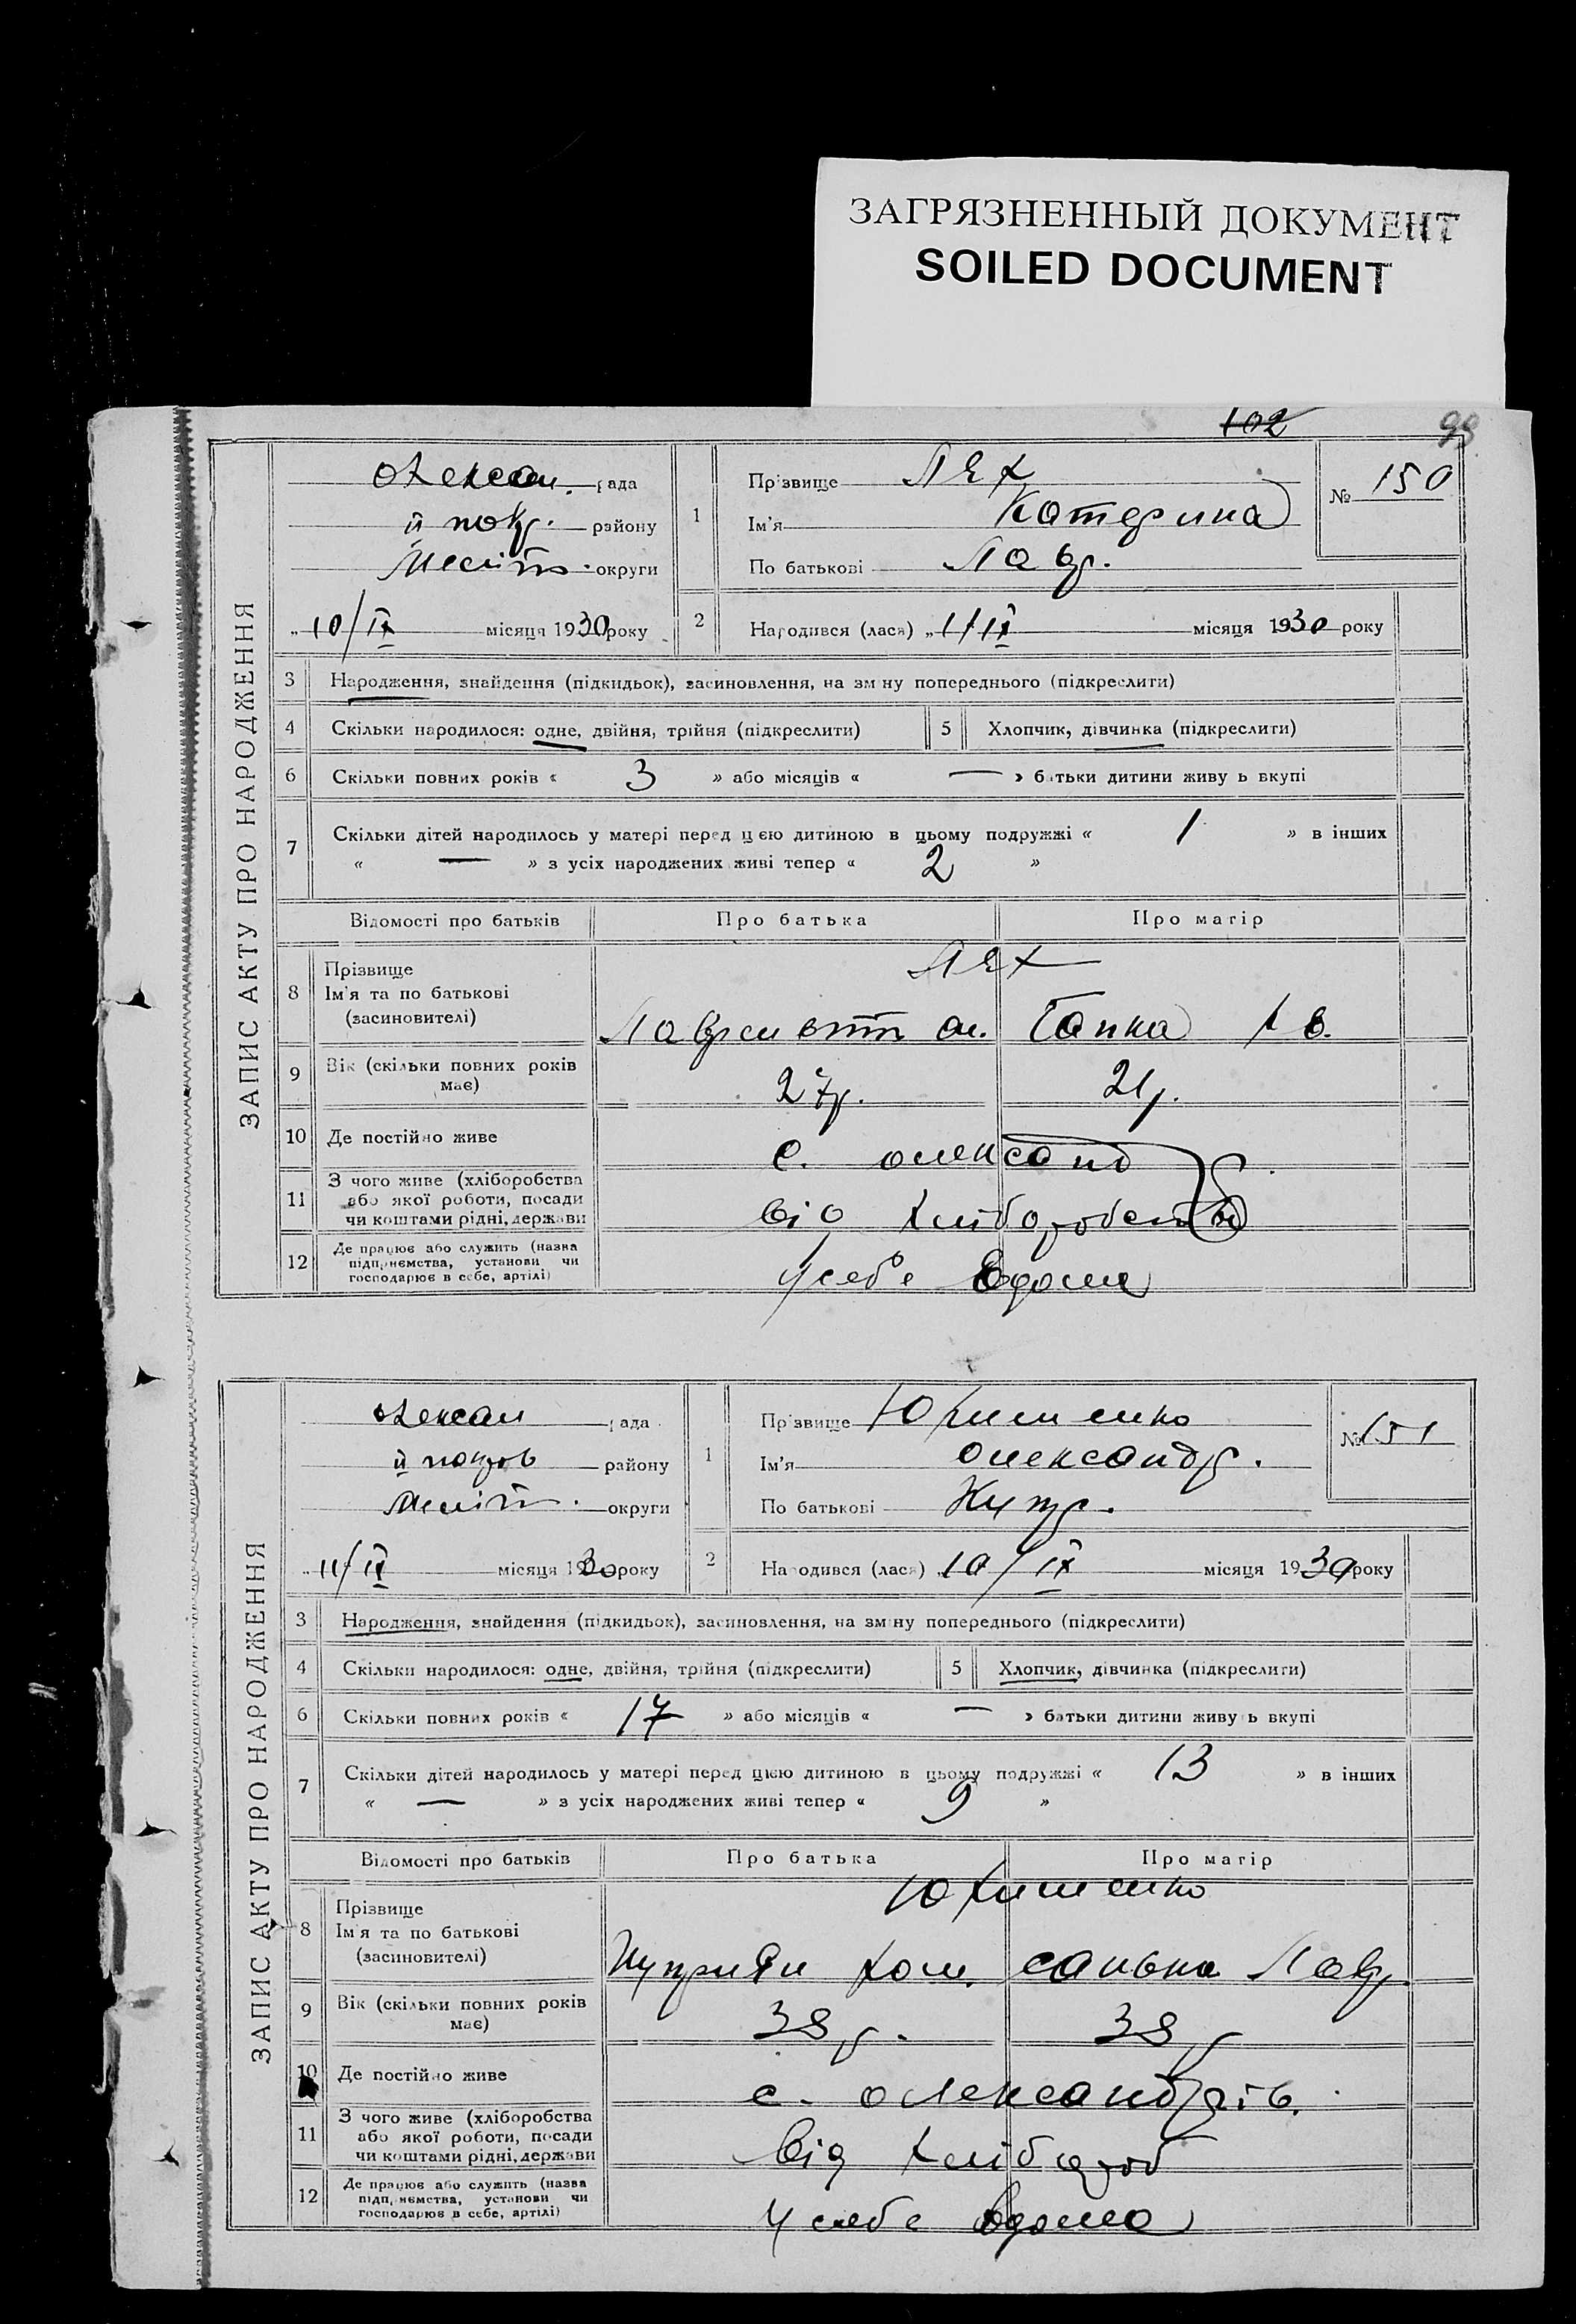 ЗАГРЯЗНЕННЫЙ ДОКУМЕНТ
SOILED DOCUMENT
102 99
ЗАПИС АКТУ ПРО НАРОДЖЕННЯ
рада
району
округи
10/IX місяця 1930 року
1
Прізвище Лях
Ім'я Катерина
По батькові Лавр.
№ 150
2 Народився (лася) „1/IX місяця 1930 року
3 Народження, знайдення (підкидьок), засиновлення, на зміну попереднього (підкреслити)
4 Скільки народилося: одне, двійня, трійня (підкреслити) 5 Хлопчик, дівчинка (підкреслити)
6 Скільки повних років « 3 » або місяців « — » батьки дитини живуть вкупі
7 Скільки дітей народилось у матері перед цією дитиною в цьому подружжі « 1 » в інших
« — » з усіх народжених живі тепер « 2 »
Відомості про батьків Про батька Про матір
8 Прізвище
Ім'я та по батькові
(засиновителі)
Лях
Гапка
9 Вік (скільки повних років має) 27 р. 21 р.
10 Де постійно живе с. Олександ
11 З чого живе (хліборобства або якої роботи, посади чи коштами рідні, держави від хліборобства
12 Де працює або служить (назва підприємства, установи чи господарює в себе, артілі) у себе вдома
ЗАПИС АКТУ ПРО НАРОДЖЕННЯ
рада
району
округи
11/IX місяця 1930 року
1
Прізвище Юхименко
Ім'я Олександр.
По батькові Купр.
№ 151
2 Народився (лася) „10/IX місяця 1930 року
3 Народження, знайдення (підкидьок), засиновлення, на зміну попереднього (підкреслити)
4 Скільки народилося: одне, двійня, трійня (підкреслити) 5 Хлопчик, дівчинка (підкреслити)
6 Скільки повних років « 17 » або місяців « — » батьки дитини живуть вкупі
7 Скільки дітей народилось у матері перед цією дитиною в цьому подружжі « 13 » в інших
« — » з усіх народжених живі тепер « 9 »
Відомості про батьків Про батька Про матір
8 Прізвище
Ім'я та по батькові
(засиновителі)
Юхименко
Куприян Хом. Санька Лавр
9 Вік (скільки повних років має) 38 р. 38 р
10 Де постійно живе с. Олександрів.
11 З чого живе (хліборобства або якої роботи, посади чи коштами рідні, держави від хлібороб
12 Де працює або служить (назва підприємства, установи чи господарює в себе, артілі) у себе вдома